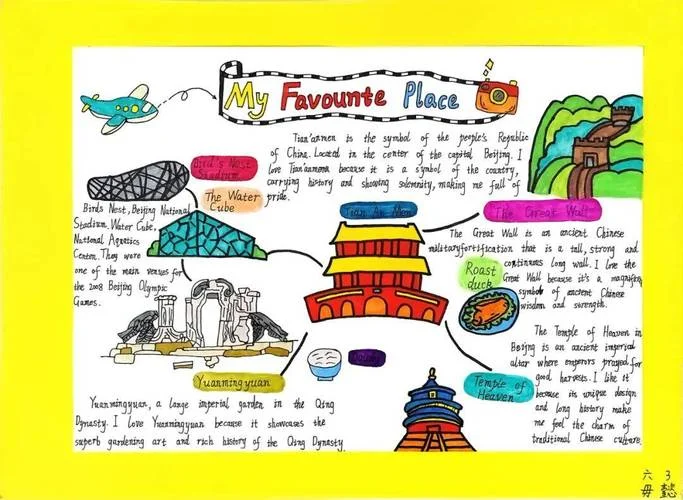 My Favounte Place
Tian'anmen is the symbol of the people's Republic
of China. Located in the center of the capital Beijing. I
love Tian'anmen because it is a symbol of the country,
carrying history and showing solemnity, making me full of
pride.
Bird's Nest
Stadium
The Water
Cube
Birds Nest, Beijing National
Stadium. Water Cube,
National Aquatics
Center. They were
one of the main venues for
the 2008 Beijing Olympic
Games.
Tian An Men
The Great Wall
The Great Wall is an ancient Chinese
military fortification that is a tall, strong and
continuous long wall. I love the
Great Wall because it's a magnificent
symbol of ancient Chinese
wisdom and strength.
Roast
duck
Yuanmingyuan
Yuanmingyuan, a large imperial garden in the Qing
Dynasty. I love Yuanmingyuan because it showcases the
superb gardening art and rich history of the Qing Dynasty.
Temple of
Heaven
The Temple of Heaven in
Beijing is an ancient imperial
altar where emperors prayed for
good harvests. I like it
because its unique design
and long history make
me feel the charm of
traditional Chinese culture.
六 3
毋 懿